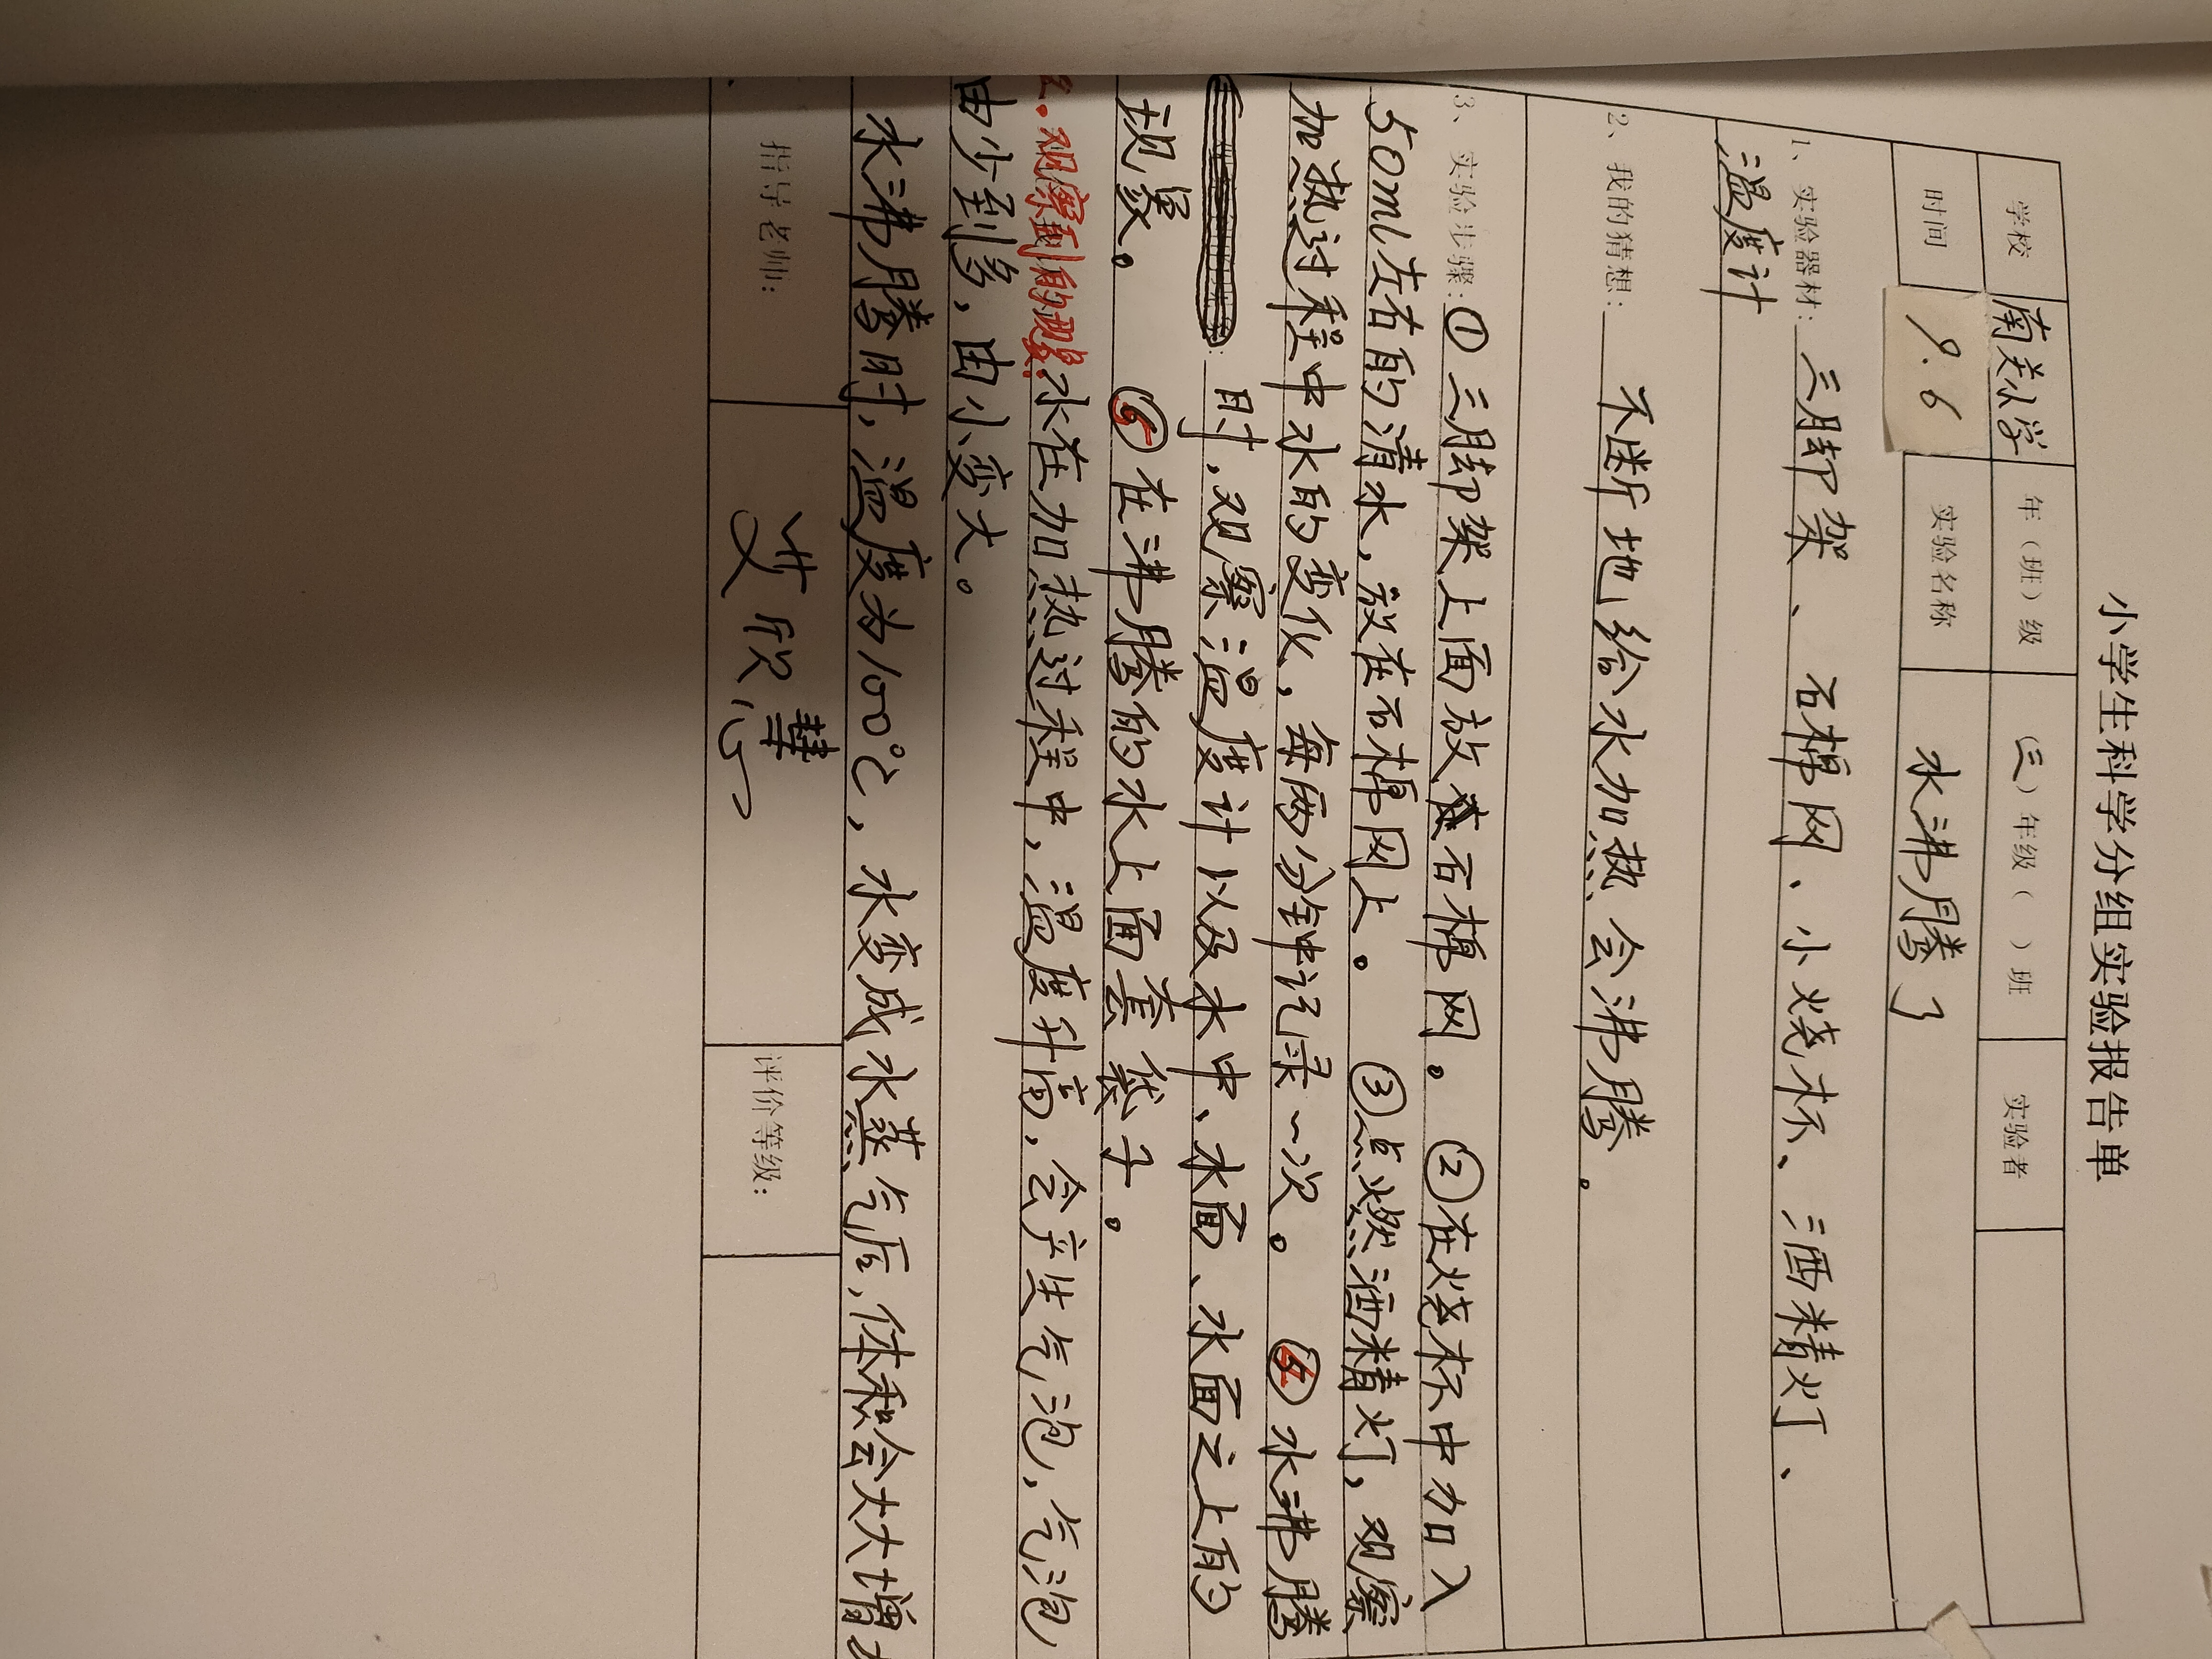 小学生科学分组实验报告单
学校 南关小学 年（班）级 （三）年级（ ）班 实验者
时间 9.6 实验名称 水沸腾了
1、实验器材：三脚架、石棉网、小烧杯、酒精灯、
温度计
2、我的猜想：不断地给水加热会沸腾。
3、实验步骤：①三脚架上面放石棉网。②在烧杯中加入
50ml左右的清水，放在石棉网上。③点燃酒精灯，观察
加热过程中水的变化，每两分钟记录一次。④水沸腾
时，观察温度计以及水中、水面、水面之上的
现象。⑤在沸腾的水上面套袋子。
观察到的现象：水在加热过程中，温度升高，会产生气泡，气泡
由少到多，由小变大。
水沸腾时，温度为100℃，水变成水蒸气后，体积会大大增
指导老师： 欣慧 评价等级：